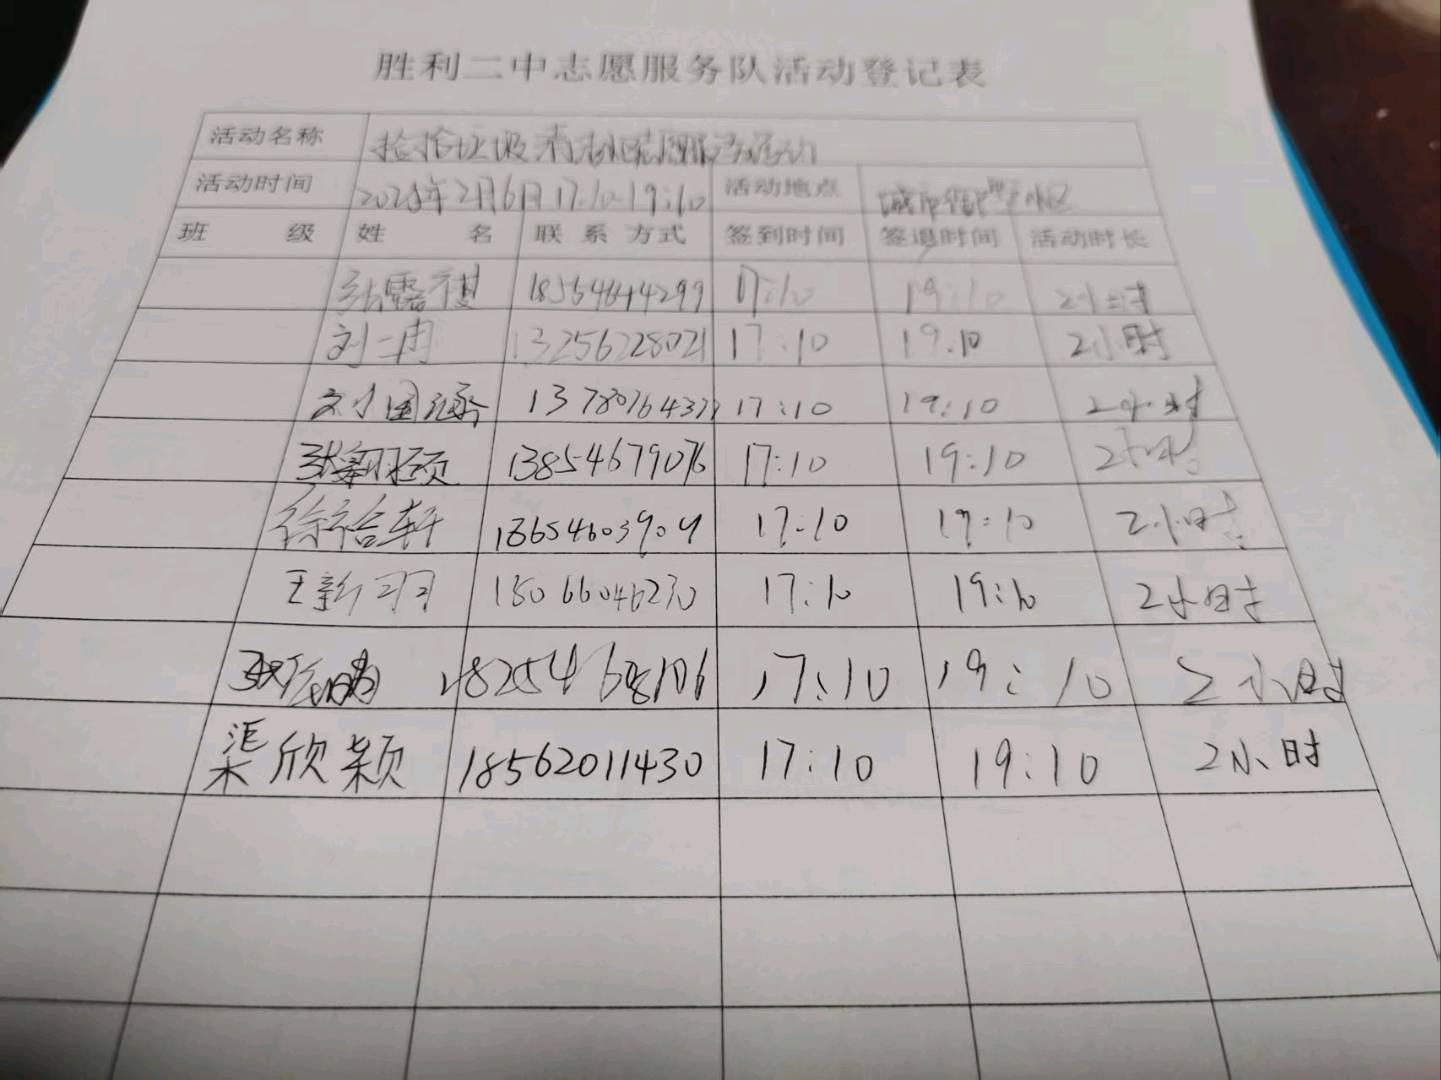 胜利二中志愿服务队活动登记表
活动名称 捡拾垃圾
活动时间 2025年2月6日17:10-19:10 活动地点 城市
班 级 姓 名 联 系 方式 签到时间 签退时间 活动时长
张露祺 18554644299 17:10 19:10 2小时
刘一冉 13256228021 17:10 19.10 2小时
刘国涵 17:10 19:10 2小时
张翱颀 13854679076 17:10 19:10 2小时
徐裕轩 17:10 19:10 2小时
王新羽 18066046270 17:10 19:10 2小时
17:10 19:10 2小时
渠欣颖 18562011430 17:10 19:10 2小时